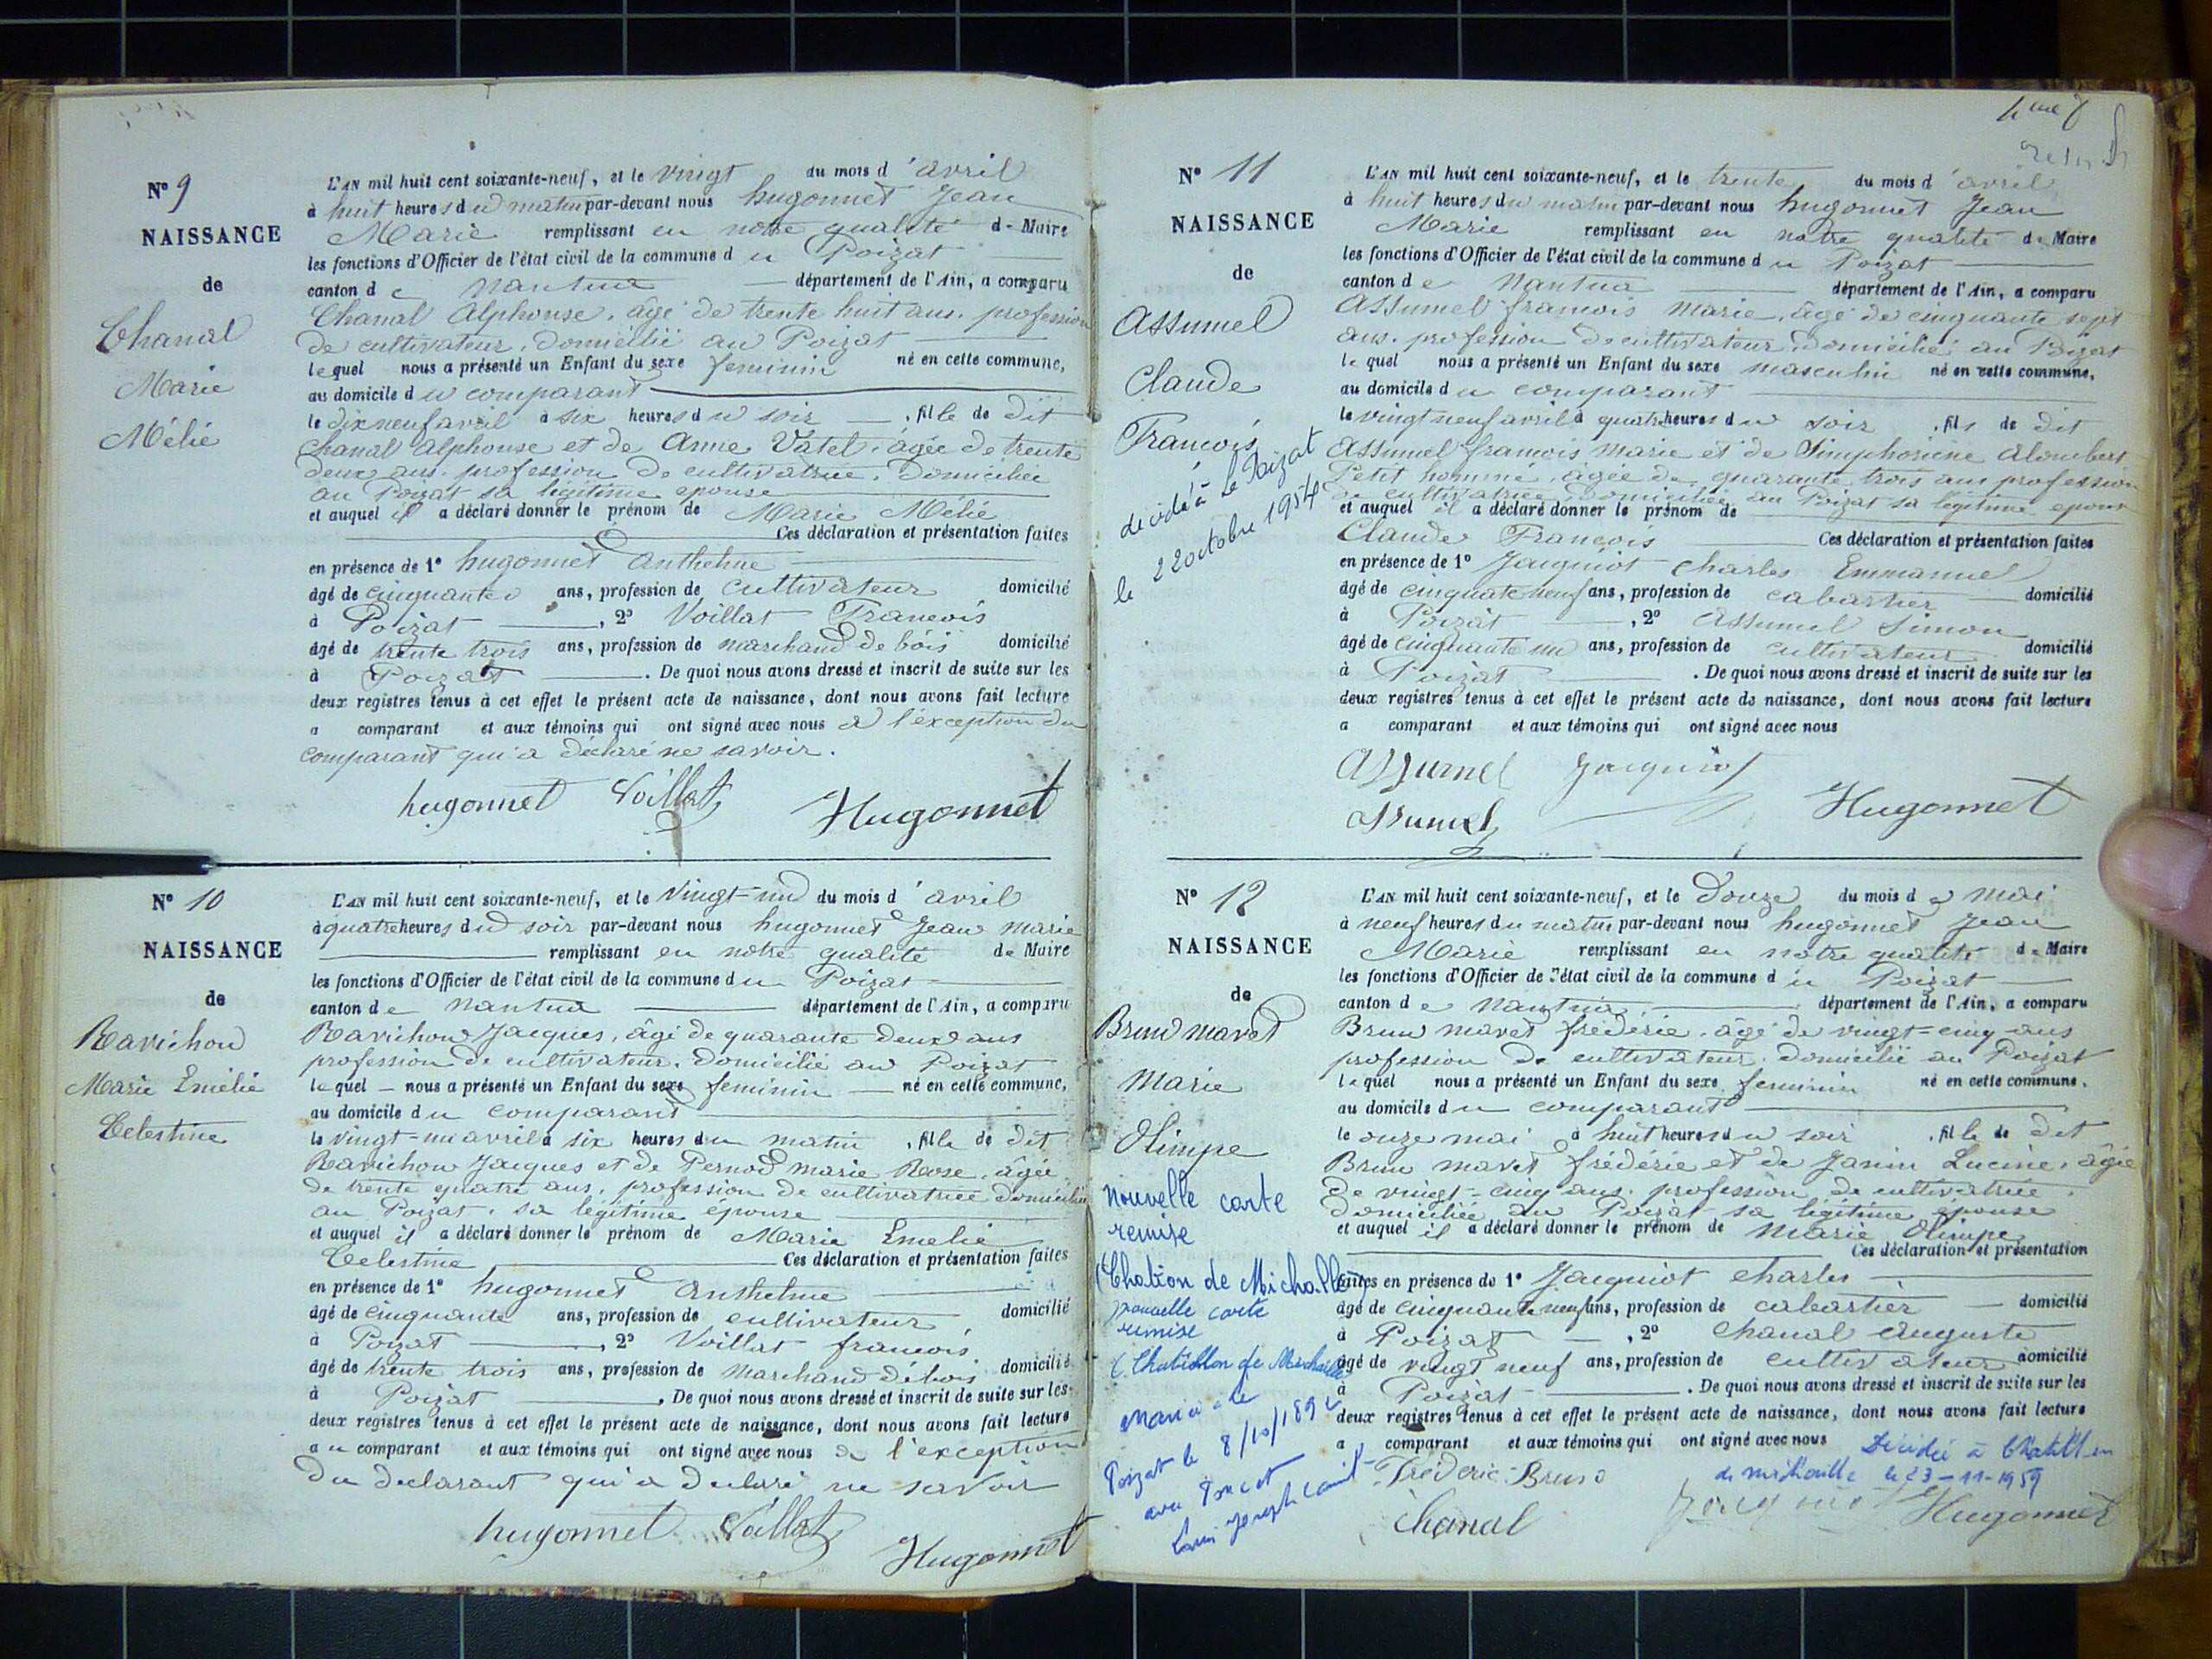 N° 9
NAISSANCE
de
Chanal
Marie
Mélie
L'AN mil huit cent soixante-neuf, et le vingt du mois d'avril
à huit heures du matin par-devant nous hugonnet Jean
Marie remplissant en notre qualité de Maire
les fonctions d'Officier de l'état civil de la commune du Poizat
canton de Nantua département de l'Ain, a comparu
Chanal Alphonse, âgé de trente huit ans, profession
de cultivateur, domicilié au Poizat
lequel nous a présenté un Enfant du sexe feminin né en cette commune,
au domicile du comparant
le dix neuf avril à six heures du soir, fille de dit
Chanal Alphonse et de Anne Vatel, âgée de trente
deux ans, profession de cultivatrice, domiciliée
au Poizat sa légitime epouse
et auquel il a déclaré donner le prénom de Marie Mélie
Ces déclaration et présentation faites
en présence de 1° hugonnet Anthelme
âgé de cinquante ans, profession de cultivateur domicilié
à Poizat, 2° Voillat François
âgé de trente trois ans, profession de marchand de bois domicilié
à Poizat. De quoi nous avons dressé et inscrit de suite sur les
deux registres tenus à cet effet le présent acte de naissance, dont nous avons fait lecture
a comparant et aux témoins qui ont signé avec nous à l'exception du
comparant qui a déclaré ne savoir.
hugonnet Voillat Hugonnet
N° 10
NAISSANCE
de
Ravichon
Marie Emélie
Celestine
L'AN mil huit cent soixante-neuf, et le vingt-un du mois d'avril
à quatre heures du soir par-devant nous hugonnet Jean marie
remplissant en notre qualité de Maire
les fonctions d'Officier de l'état civil de la commune du Poizat
canton de Nantua département de l'Ain, a comparu
Ravichon Jacques, âgé de quarante deux ans
profession de cultivateur, domicilié au Poizat
lequel nous a présenté un Enfant du sexe feminin né en cette commune,
au domicile du comparant
le vingt-un avril à six heures du matin, fille de dit
Ravichon Jacques et de Pernod marie Rose, âgée
de trente quatre ans, profession de cultivatrice domiciliée
au Poizat, sa legitime epouse
et auquel il a déclaré donner le prénom de Marie Emelie
Celestine Ces déclaration et présentation faites
en présence de 1° hugonnet Anthelme
âgé de cinquante ans, profession de cultivateur domicilié
à Poizat, 2° Voillat francois
âgé de trente trois ans, profession de Marchand de bois domicilié
à Poizat. De quoi nous avons dressé et inscrit de suite sur les
deux registres tenus à cet effet le présent acte de naissance, dont nous avons fait lecture
au comparant et aux témoins qui ont signé avec nous à l'exception
du declarant qui a declaré ne savoir
hugonnet Voillat Hugonnet
N° 11
NAISSANCE
de
Assumel
Claude
François
décédé à Le Poizat
le 22 octobre 1954
L'AN mil huit cent soixante-neuf, et le trente du mois d'avril
à huit heures du matin par-devant nous hugonnet Jean
Marie remplissant en notre qualité de Maire
les fonctions d'Officier de l'état civil de la commune du Poizat
canton de Nantua département de l'Ain, a comparu
Assumel francois marie, âgé de cinquante sept
ans, profession de cultivateur, domicilié au Poizat
lequel nous a présenté un Enfant du sexe masculin né en cette commune,
au domicile du comparant
le vingt neuf avril à quatre heures du soir, fils de dit
Assumel francois Marie et de Simphorine Alombert
Petit homme, âgée de quarante trois ans profession
de cultivatrice domiciliée au Poizat sa légitime epouse
et auquel il a déclaré donner le prénom de
Claude François Ces déclaration et présentation faites
en présence de 1° Jacquiot Charles Emmanuel
âgé de cinquante neuf ans, profession de cabartier domicilié
à Poizat, 2° Assumel Simon
âgé de cinquante un ans, profession de cultivateur domicilié
à Poizat. De quoi nous avons dressé et inscrit de suite sur les
deux registres tenus à cet effet le présent acte de naissance, dont nous avons fait lecture
a comparant et aux témoins qui ont signé avec nous
Assumel Jacquiot
Assumel Hugonnet
N° 12
NAISSANCE
de
Brun mavet
Marie
Olimpe
Nouvelle carte
remise
(Chatillon de Michaille)
nouvelle carte
remise
(Chatillon de Michaille)
Mariée le
Poizat le 8/10/189
avec Poncet
Louis Joseph
L'AN mil huit cent soixante-neuf, et le Douze du mois de mai
à neuf heures du matin par-devant nous hugonnet Jean
Marie remplissant en notre qualité de Maire
les fonctions d'Officier de l'état civil de la commune du Poizat
canton de Nantua département de l'Ain, a comparu
Brun mavet fréderic, âgé de vingt-cinq ans
profession de cultivateur, domicilié au Poizat
lequel nous a présenté un Enfant du sexe feminin né en cette commune,
au domicile du comparant
le onze mai à huit heures du soir, fille de dit
Brun mavet fréderic et de Janin Lucine, âgée
de vingt-cinq ans, profession de cultivatrice,
domiciliée au Poizat sa legitime epouse
et auquel il a déclaré donner le prénom de Marie Olimpe
Ces déclaration et présentation
faites en présence de 1° Jacquiot charles
âgé de cinquante neuf ans, profession de cabartier domicilié
à Poizat, 2° Chanal Auguste
âgé de vingt neuf ans, profession de cultivateur domicilié
à Poizat. De quoi nous avons dressé et inscrit de suite sur les
deux registres tenus à cet effet le présent acte de naissance, dont nous avons fait lecture
a comparant et aux témoins qui ont signé avec nous
Décédée à Chatillon
de Michaille le 23-11-1959
Fréderic Brun Jacquiot Hugonnet
Chanal